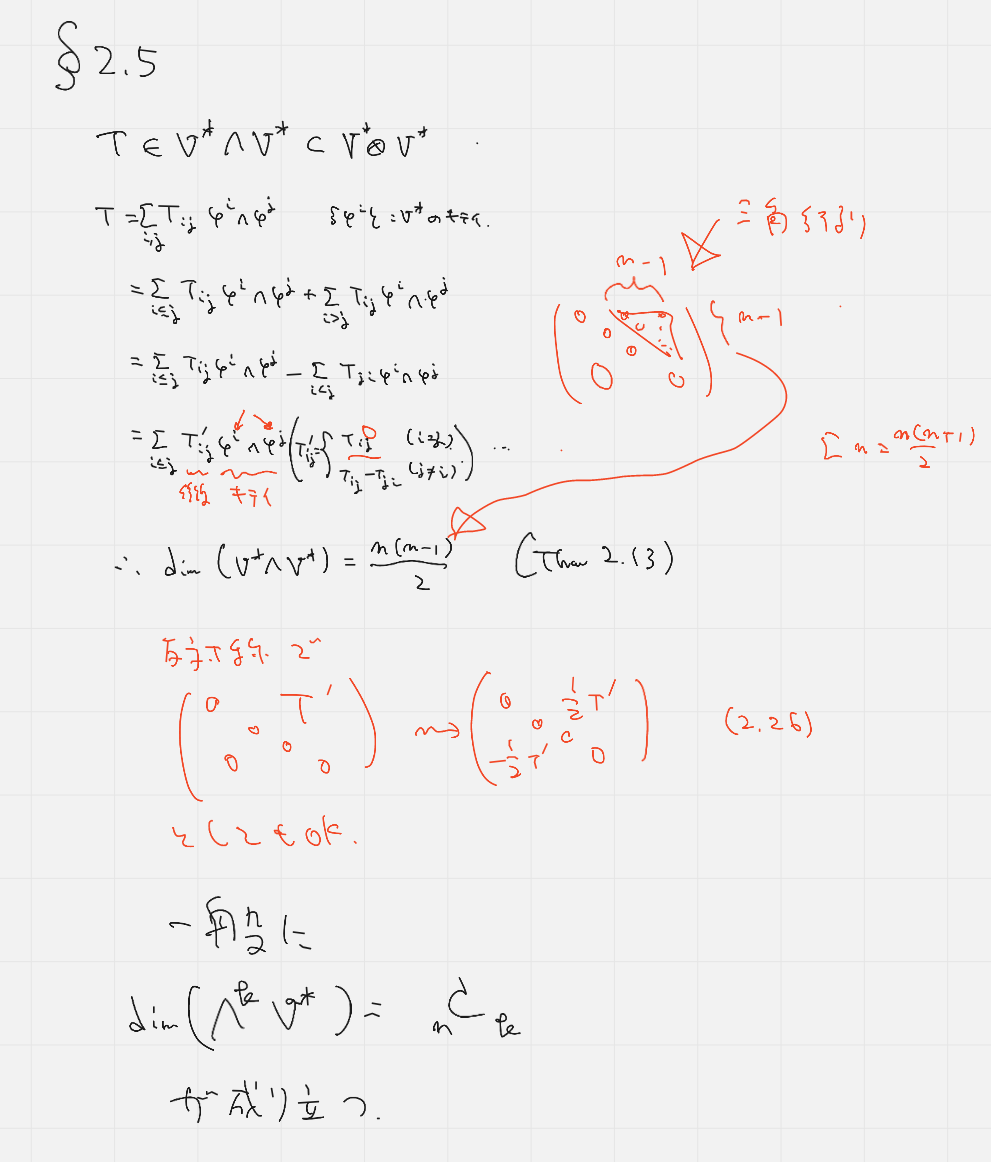 §2.5
T ∈ V* ∧ V* ⊂ V* ⊗ V*
T = Σ_{i,j} T_{ij} φ^i ∧ φ^j {φ^i} : V* のキテイ.
= Σ_{i≤j} T_{ij} φ^i ∧ φ^j + Σ_{i>j} T_{ij} φ^i ∧ φ^j
= Σ_{i≤j} T_{ij} φ^i ∧ φ^j − Σ_{i<j} T_{ji} φ^i ∧ φ^j
= Σ_{i≤j} T'_{ij} φ^i ∧ φ^j ( T'_{ij} = { T_{ij} 0 (i=j) T_{ij} − T_{ji} (j≠i) ) ...
キテイ
三角行列
n−1
( 0 0 0 0 0 0 0 ) } n−1
Σ n = n(n+1)/2
∴ dim (V* ∧ V*) = n(n−1)/2 (Thm 2.13)
( 0 T' 0 0 0 0 ) ⇝ ( 0 ½T' 0 0 −½T' 0 ) (2.26)
としてもok.
一般に
dim(∧^k V*) = nCk
が成り立つ.